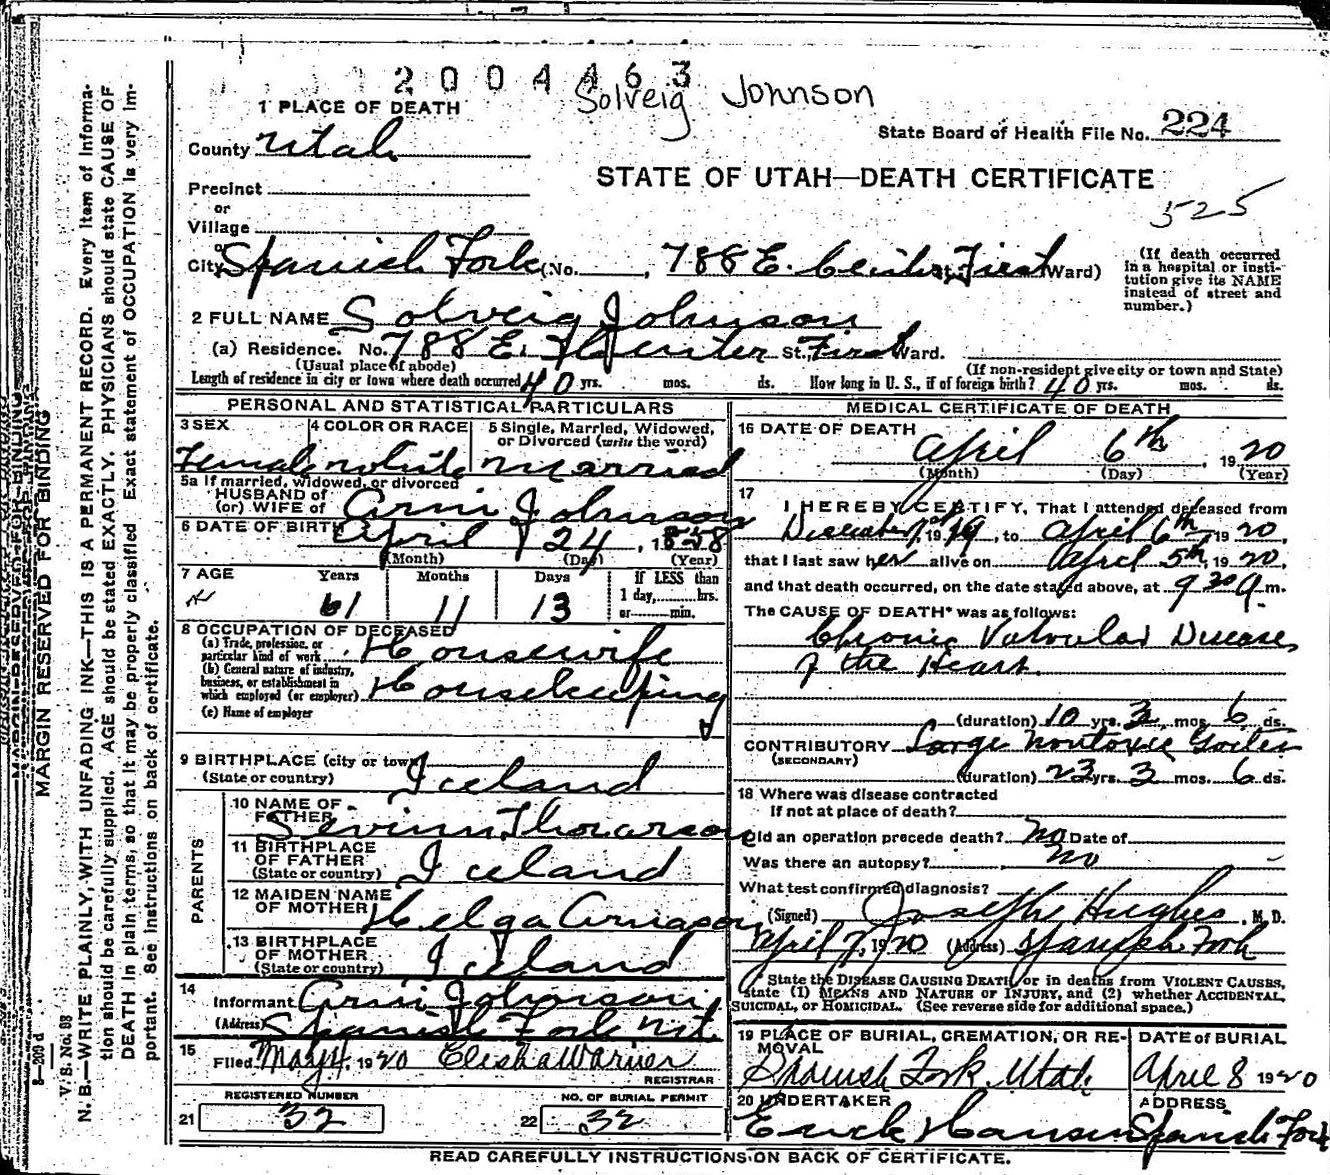 2004463
Solveig Johnson
1 PLACE OF DEATH
State Board of Health File No. 224
County Utah
STATE OF UTAH—DEATH CERTIFICATE
Precinct
525
or
Village
or
City Spanish Fork (No. , 788 E. St., First Ward)
(If death occurred
in a hospital or insti-
tution give its NAME
instead of street and
number.)
2 FULL NAME Solveig Johnson
(a) Residence. No. 788 E. Center St., First Ward.
(Usual place of abode)
(If non-resident give city or town and State)
Length of residence in city or town where death occurred 40 yrs. mos. ds. How long in U. S., if of foreign birth? 40 yrs. mos. ds.
PERSONAL AND STATISTICAL PARTICULARS
3 SEX
Female
4 COLOR OR RACE
white
5 Single, Married, Widowed,
or Divorced (write the word)
Married
5a If married, widowed, or divorced
HUSBAND of
(or) WIFE of Arni Johnson
6 DATE OF BIRTH April 24, 1858
(Month) (Day) (Year)
7 AGE Years Months Days If LESS than
1 day, hrs.
or min.
61 11 13
8 OCCUPATION OF DECEASED
(a) Trade, profession, or
particular kind of work Housewife
(b) General nature of industry,
business, or establishment in
which employed (or employer) Housekeeping
(c) Name of employer
9 BIRTHPLACE (city or town)
(State or country) Iceland
PARENTS
10 NAME OF
FATHER Thorarson
11 BIRTHPLACE
OF FATHER
(State or country) Iceland
12 MAIDEN NAME
OF MOTHER Helga Arnason
13 BIRTHPLACE
OF MOTHER
(State or country) Iceland
14
Informant Arni Johnson
(Address) Spanish Fork Ut.
15
Filed May 4, 1920 Elisha Warner
REGISTRAR
REGISTERED NUMBER
21 32
NO. OF BURIAL PERMIT
22 32
MEDICAL CERTIFICATE OF DEATH
16 DATE OF DEATH
April 6th, 1920
(Month) (Day) (Year)
17
I HEREBY CERTIFY, That I attended deceased from
December 1st 1919, to April 6th, 1920,
that I last saw her alive on April 5th, 1920,
and that death occurred, on the date stated above, at 9 30 a m.
The CAUSE OF DEATH* was as follows:
Chronic Valvular Disease
of the Heart.
(duration) 10 yrs. 3 mos. 6 ds.
CONTRIBUTORY Large nontoxic Goiter
(SECONDARY)
(duration) 23 yrs. 3 mos. 6 ds.
18 Where was disease contracted
If not at place of death?
Did an operation precede death? No Date of
Was there an autopsy? No
What test confirmed diagnosis?
(Signed) Joseph Hughes, M. D.
April 7, 1920 (Address) Spanish Fork
*State the DISEASE CAUSING DEATH, or in deaths from VIOLENT CAUSES,
state (1) MEANS AND NATURE OF INJURY, and (2) whether ACCIDENTAL,
SUICIDAL, or HOMICIDAL. (See reverse side for additional space.)
19 PLACE OF BURIAL, CREMATION, OR RE-
MOVAL
Spanish Fork, Utah
DATE of BURIAL
April 8 1920
20 UNDERTAKER
Erick Hansen
ADDRESS
Spanish Fork
READ CAREFULLY INSTRUCTIONS ON BACK OF CERTIFICATE.
MARGIN RESERVED FOR BINDING
V. S. No. 98
N. B.—WRITE PLAINLY, WITH UNFADING INK—THIS IS A PERMANENT RECORD. Every item of informa-
tion should be carefully supplied. AGE should be stated EXACTLY. PHYSICIANS should state CAUSE OF
DEATH in plain terms, so that it may be properly classified. Exact statement of OCCUPATION is very im-
portant. See instructions on back of certificate.